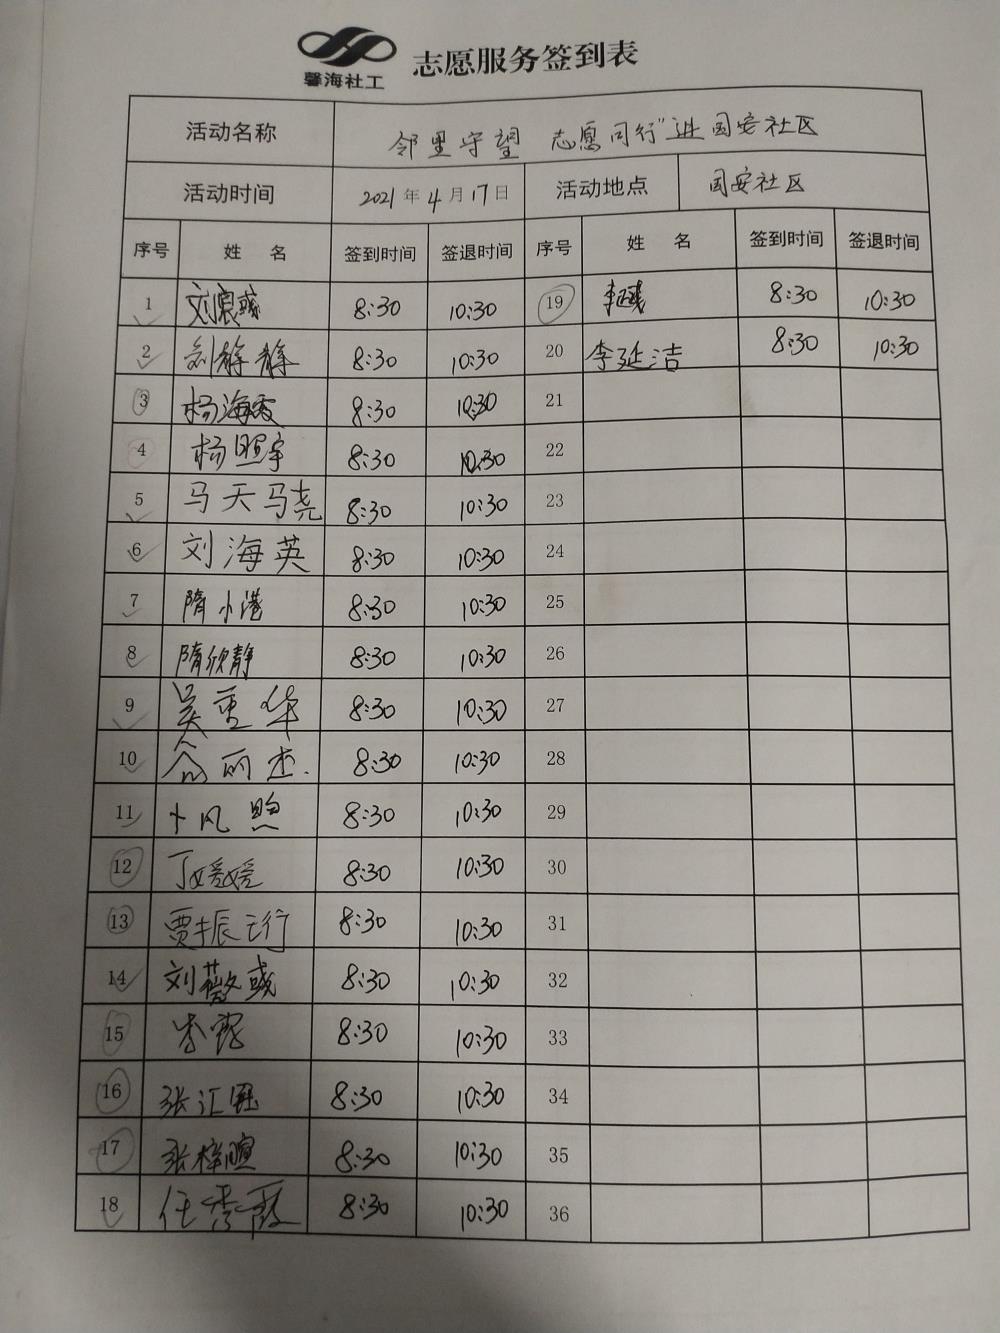 馨海社工
志愿服务签到表
活动名称 邻里守望 志愿同行"进国安社区
活动时间 2021年4月17日 活动地点 国安社区
序号 姓 名 签到时间 签退时间 序号 姓 名 签到时间 签退时间
1 8:30 10:30 19 8:30 10:30
2 刘静静 8:30 10:30 20 李延洁 8:30 10:30
3 杨海霞 8:30 10:30 21
4 杨照宇 8:30 10:30 22
5 马天骁 8:30 10:30 23
6 刘海英 8:30 10:30 24
7 隋小港 8:30 10:30 25
8 隋欣静 8:30 10:30 26
9 吴重华 8:30 10:30 27
10 俞丽杰. 8:30 10:30 28
11 卜凡煦 8:30 10:30 29
12 丁媛媛 8:30 10:30 30
13 贾振行 8:30 10:30 31
14 刘薇彧 8:30 10:30 32
15 李霞 8:30 10:30 33
16 张汇 8:30 10:30 34
17 张梓暄 8:30 10:30 35
18 任秀霞 8:30 10:30 36